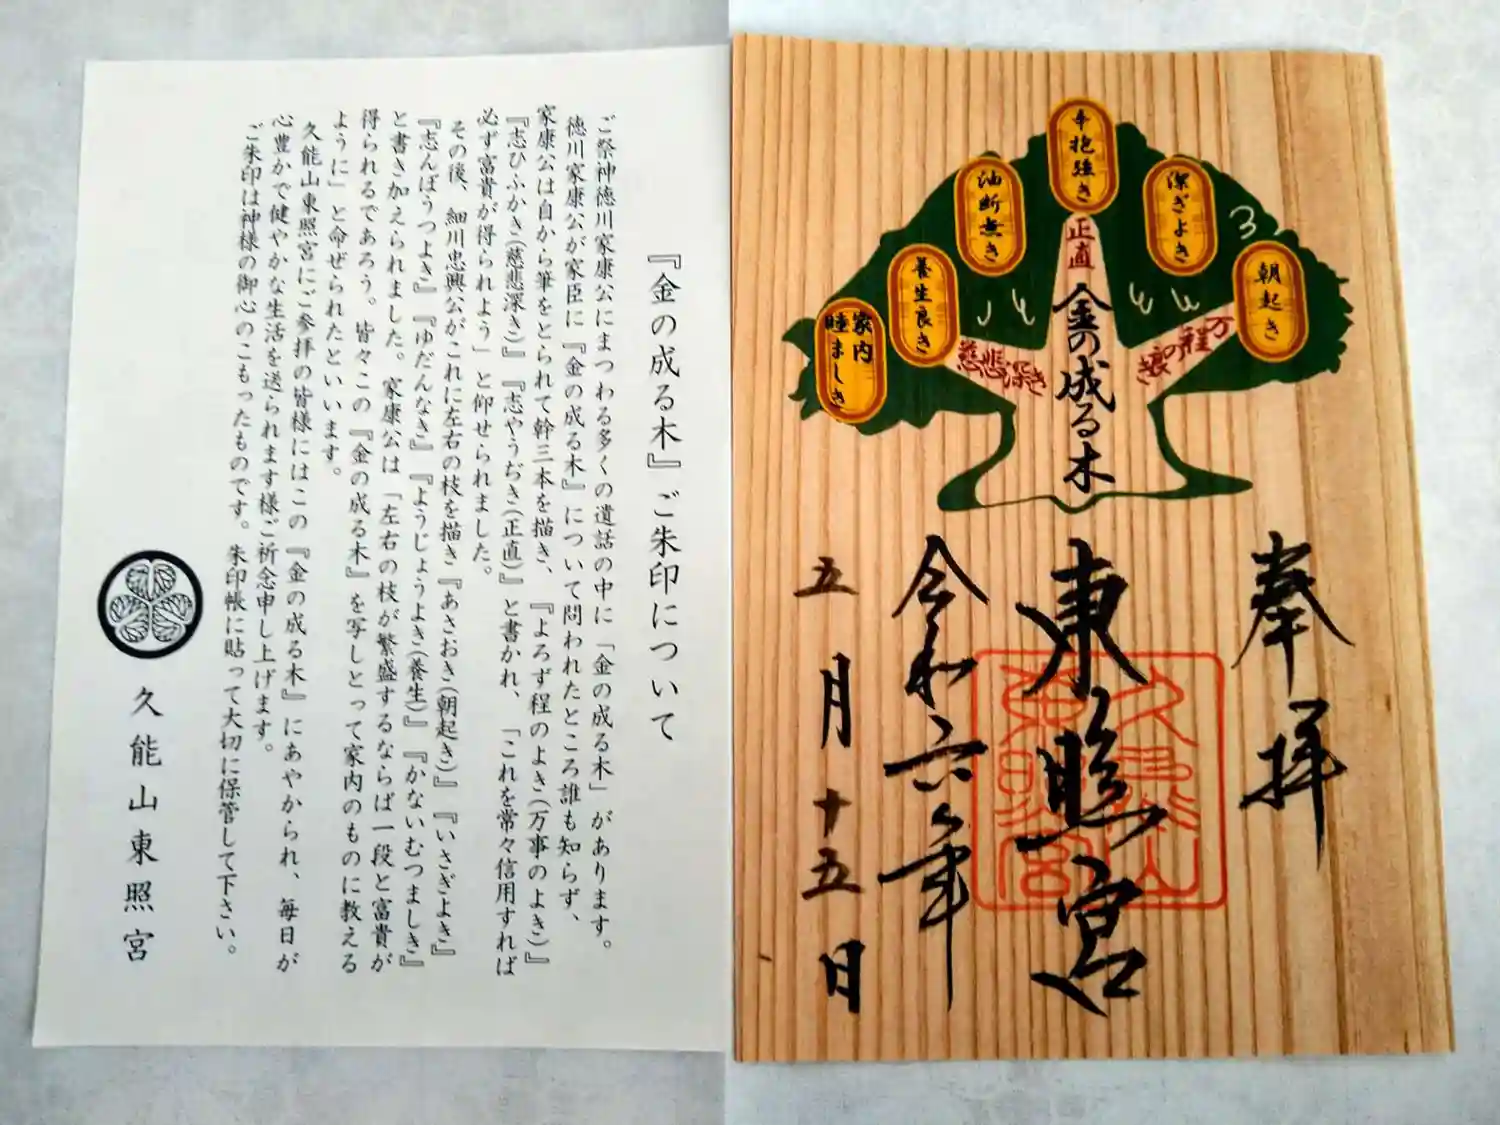 『金の成る木』ご朱印について
ご祭神徳川家康公にまつわる多くの遺話の中に「金の成る木」があります。
徳川家康公が家臣に『金の成る木』について問われたところ誰も知らず、
家康公は自から筆をとられて幹三本を描き、『よろず程のよき(万事のよき)』
『志ひふかき(慈悲深き)』『志やうぢき(正直)』と書かれ、「これを常々信用すれば
必ず富貴が得られよう」と仰せられました。
その後、細川忠興公がこれに左右の枝を描き『あさおき(朝起き)』『いさぎよき』
『志んぼうつよき』『ゆだんなき』『ようじょうよき(養生)』『かないむつましき』
と書き加えられました。家康公は「左右の枝が繁盛するならば一段と富貴が
得られるであろう。皆々この『金の成る木』を写しとって家内のものに教える
ように」と命ぜられたといいます。
久能山東照宮にご参拝の皆様にはこの『金の成る木』にあやかられ、毎日が
心豊かで健やかな生活を送られます様ご祈念申し上げます。
ご朱印は神様の御心のこもったものです。朱印帳に貼って大切に保管して下さい。
久能山東照宮
朝起き
潔ぎよき
辛抱強き
油断無き
養生良き
家内
睦ましき
万程の良き
正直
慈悲深き
金の成る木
奉拝
東照宮
令和六年
五月十五日